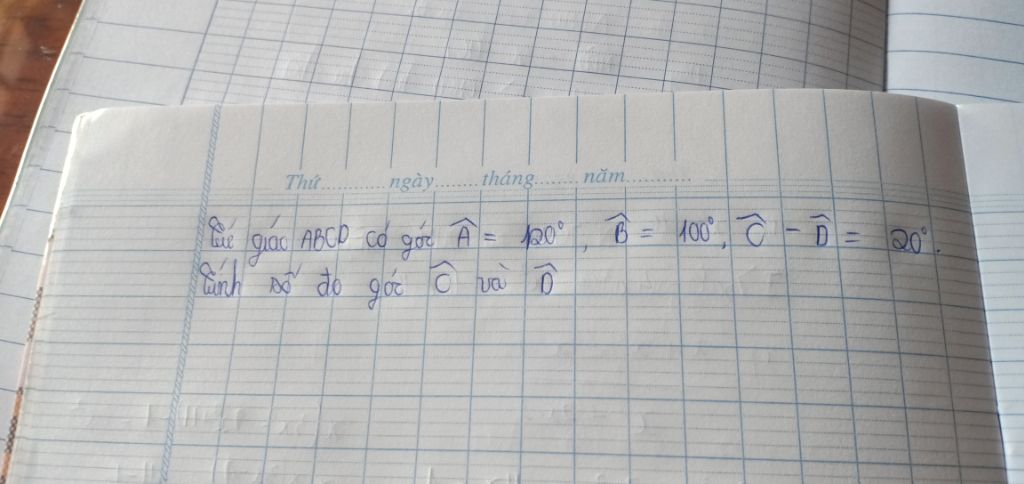 Thứ............ ngày........ tháng........ năm............
Tứ giác ABCD có góc Â = 120°, B̂ = 100°, Ĉ - D̂ = 20°.
Tính số đo góc Ĉ và D̂